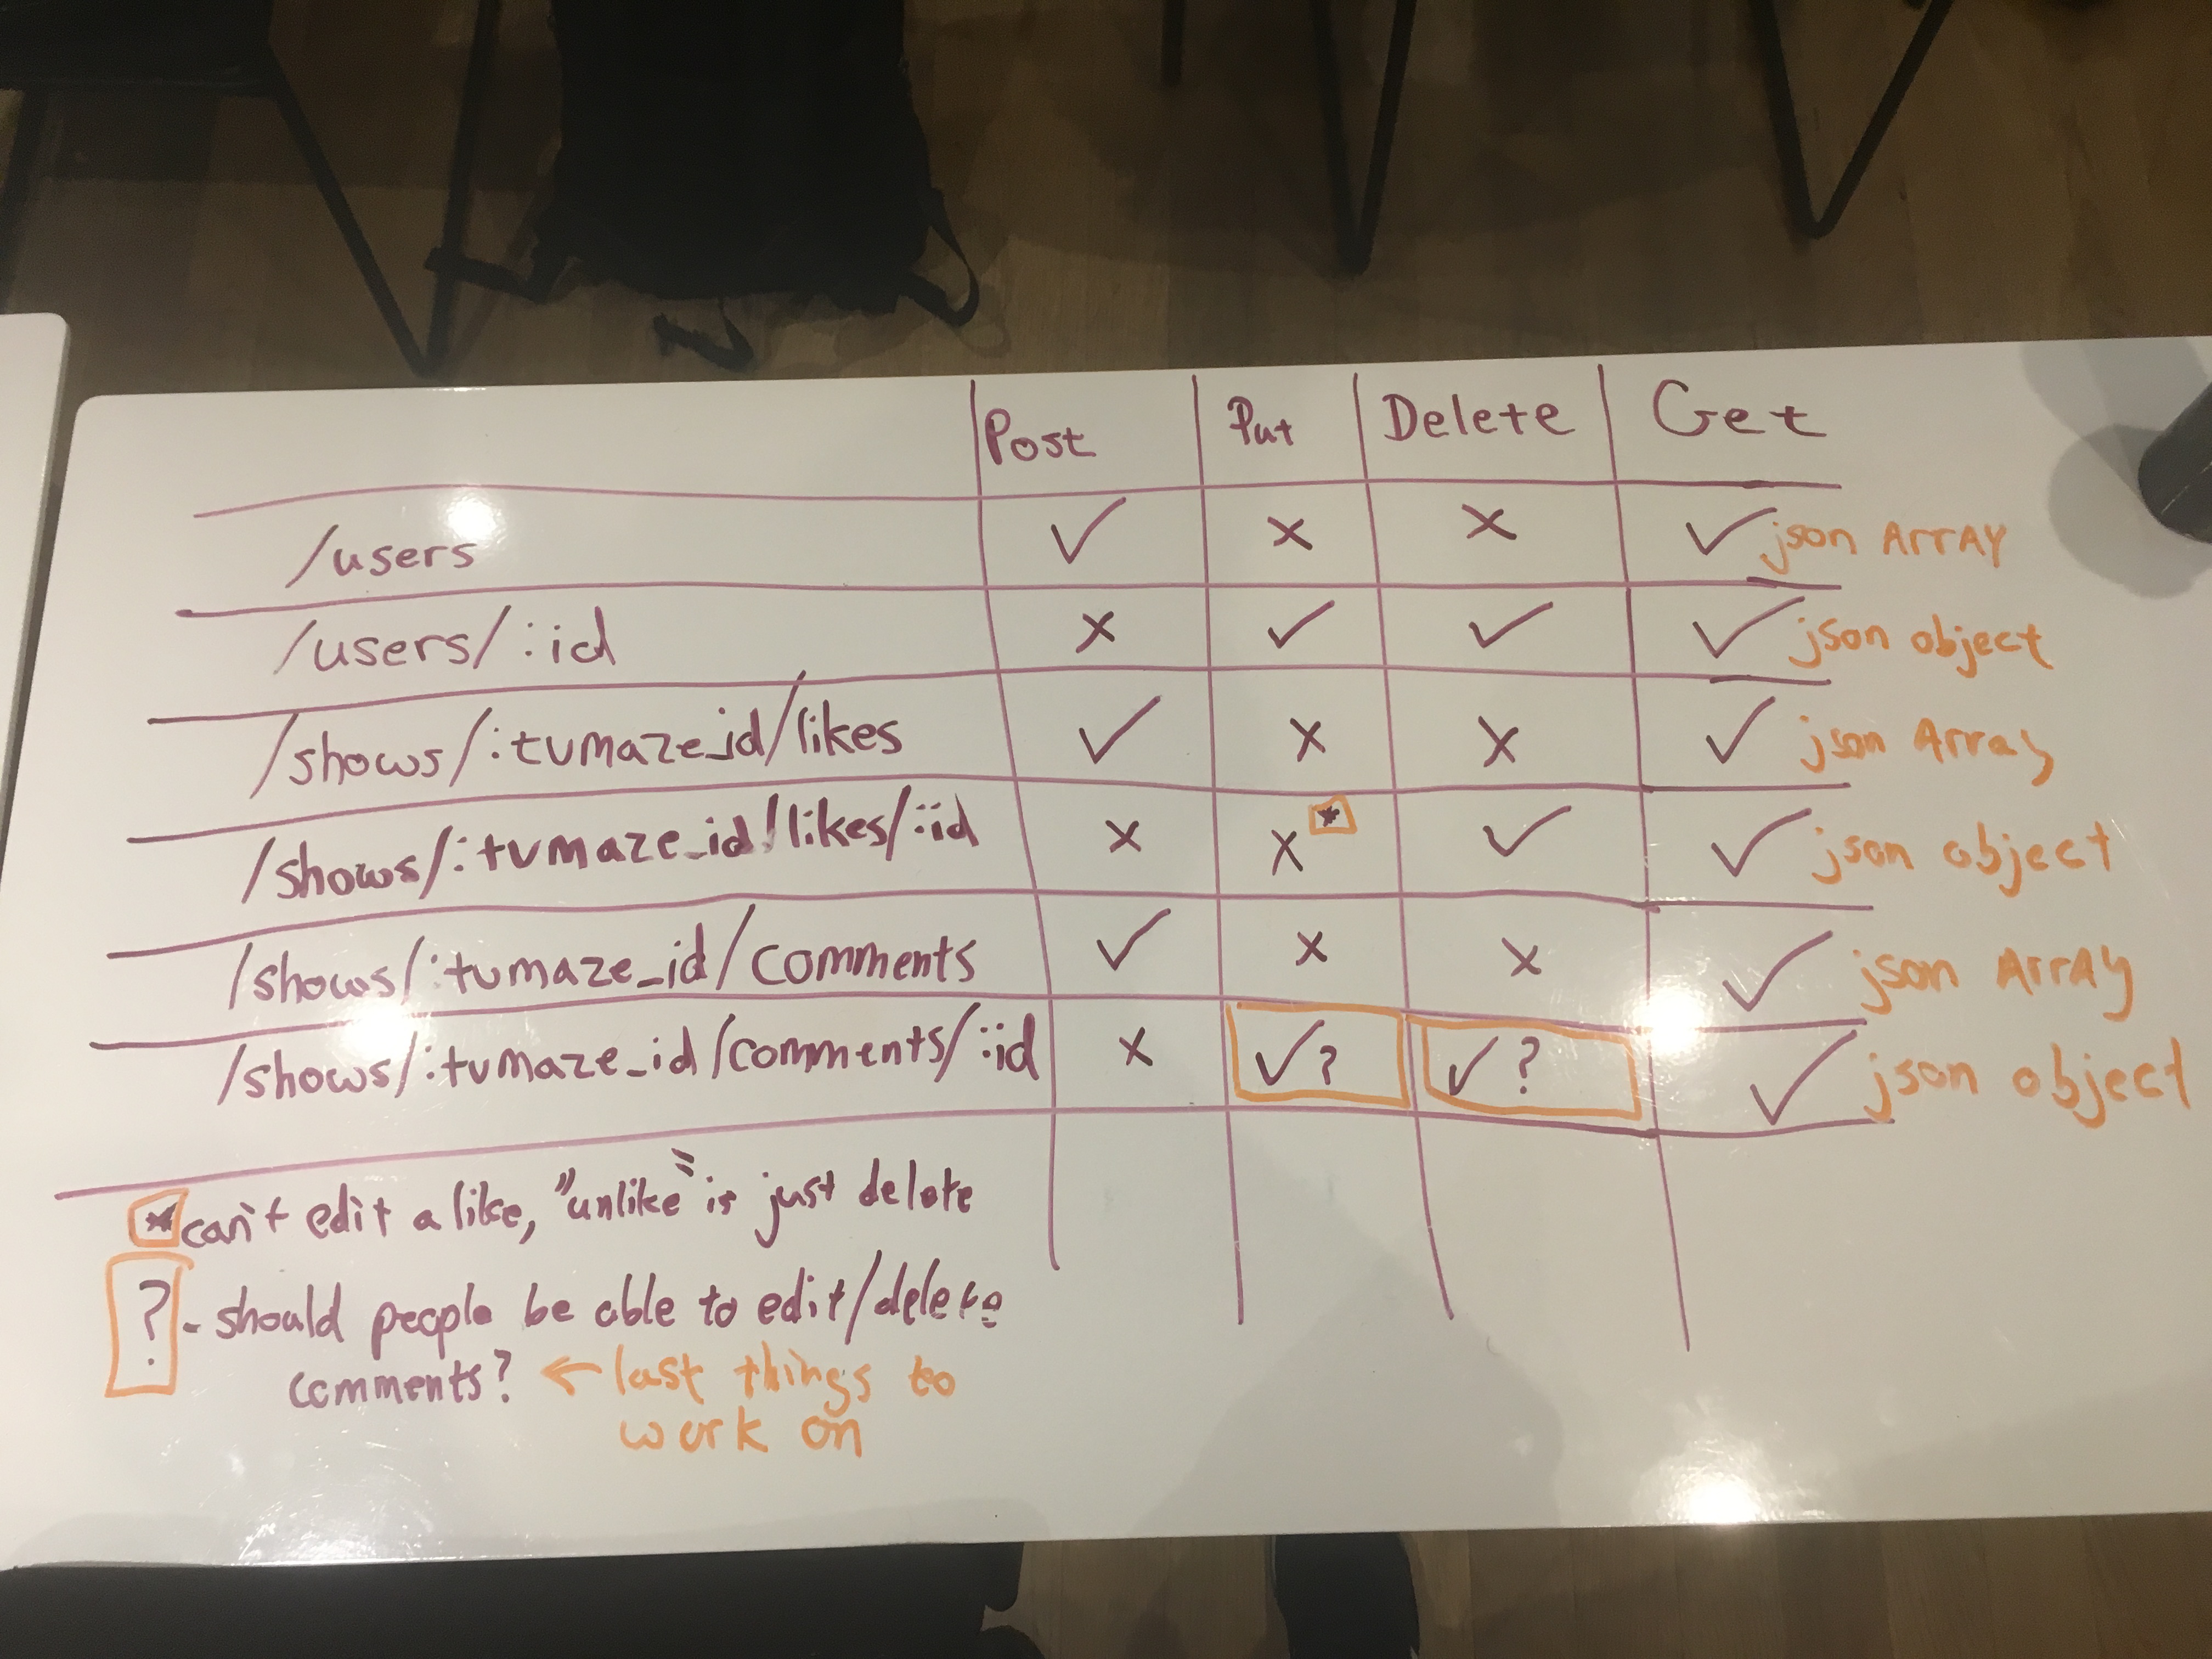 Post Put Delete Get
/users ✓ x x ✓ json ARRAY
/users/:id x ✓ ✓ ✓ json object
/shows/:tvmaze_id/likes ✓ x x ✓ json Array
/shows/:tvmaze_id/likes/:id x x* ✓ ✓ json object
/shows/:tvmaze_id/comments ✓ x x ✓ json ArrAy
/shows/:tvmaze_id/comments/:id x ✓? ✓? ✓ json object
*can't edit a like, "unlike" is just delete
? - should people be able to edit/delete
comments? ← last things to
work on